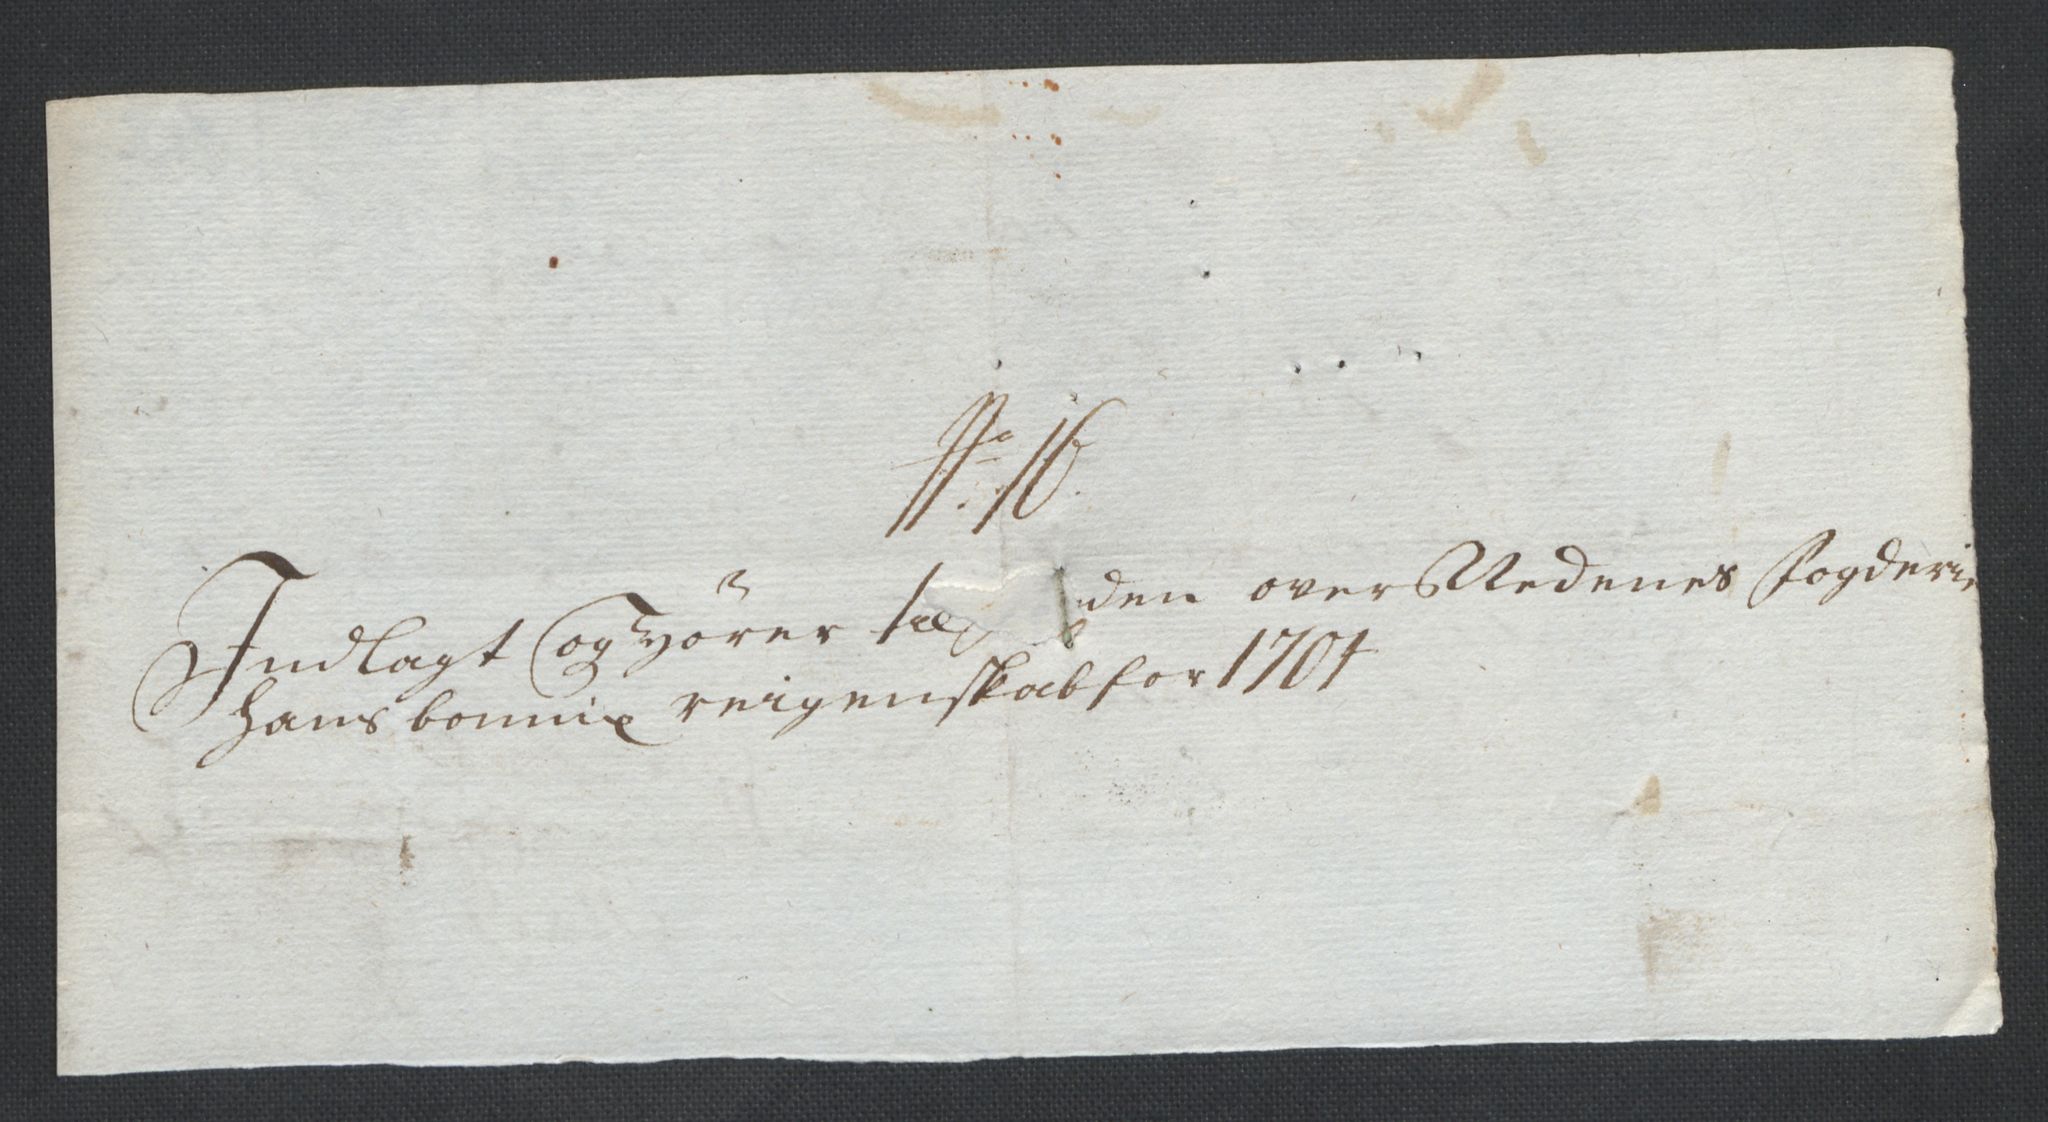 No 16.
Indlagt og hörer til den over Nedenes Fogderie
Hans bonnix reigenskab for 1704